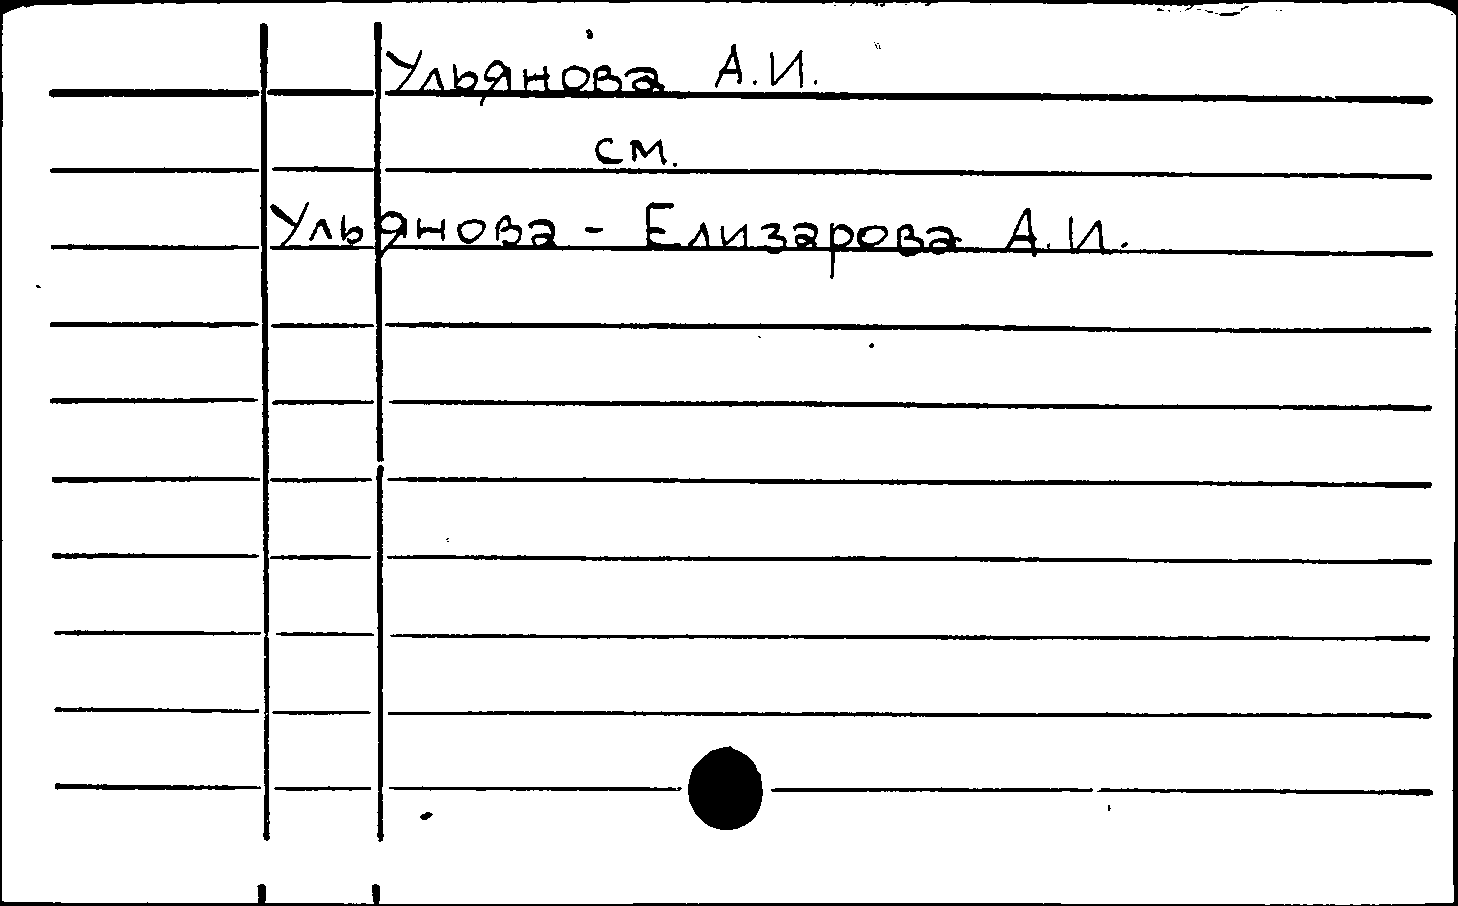 Ульянова А.И.
см.
Ульянова - Елизарова А.И.